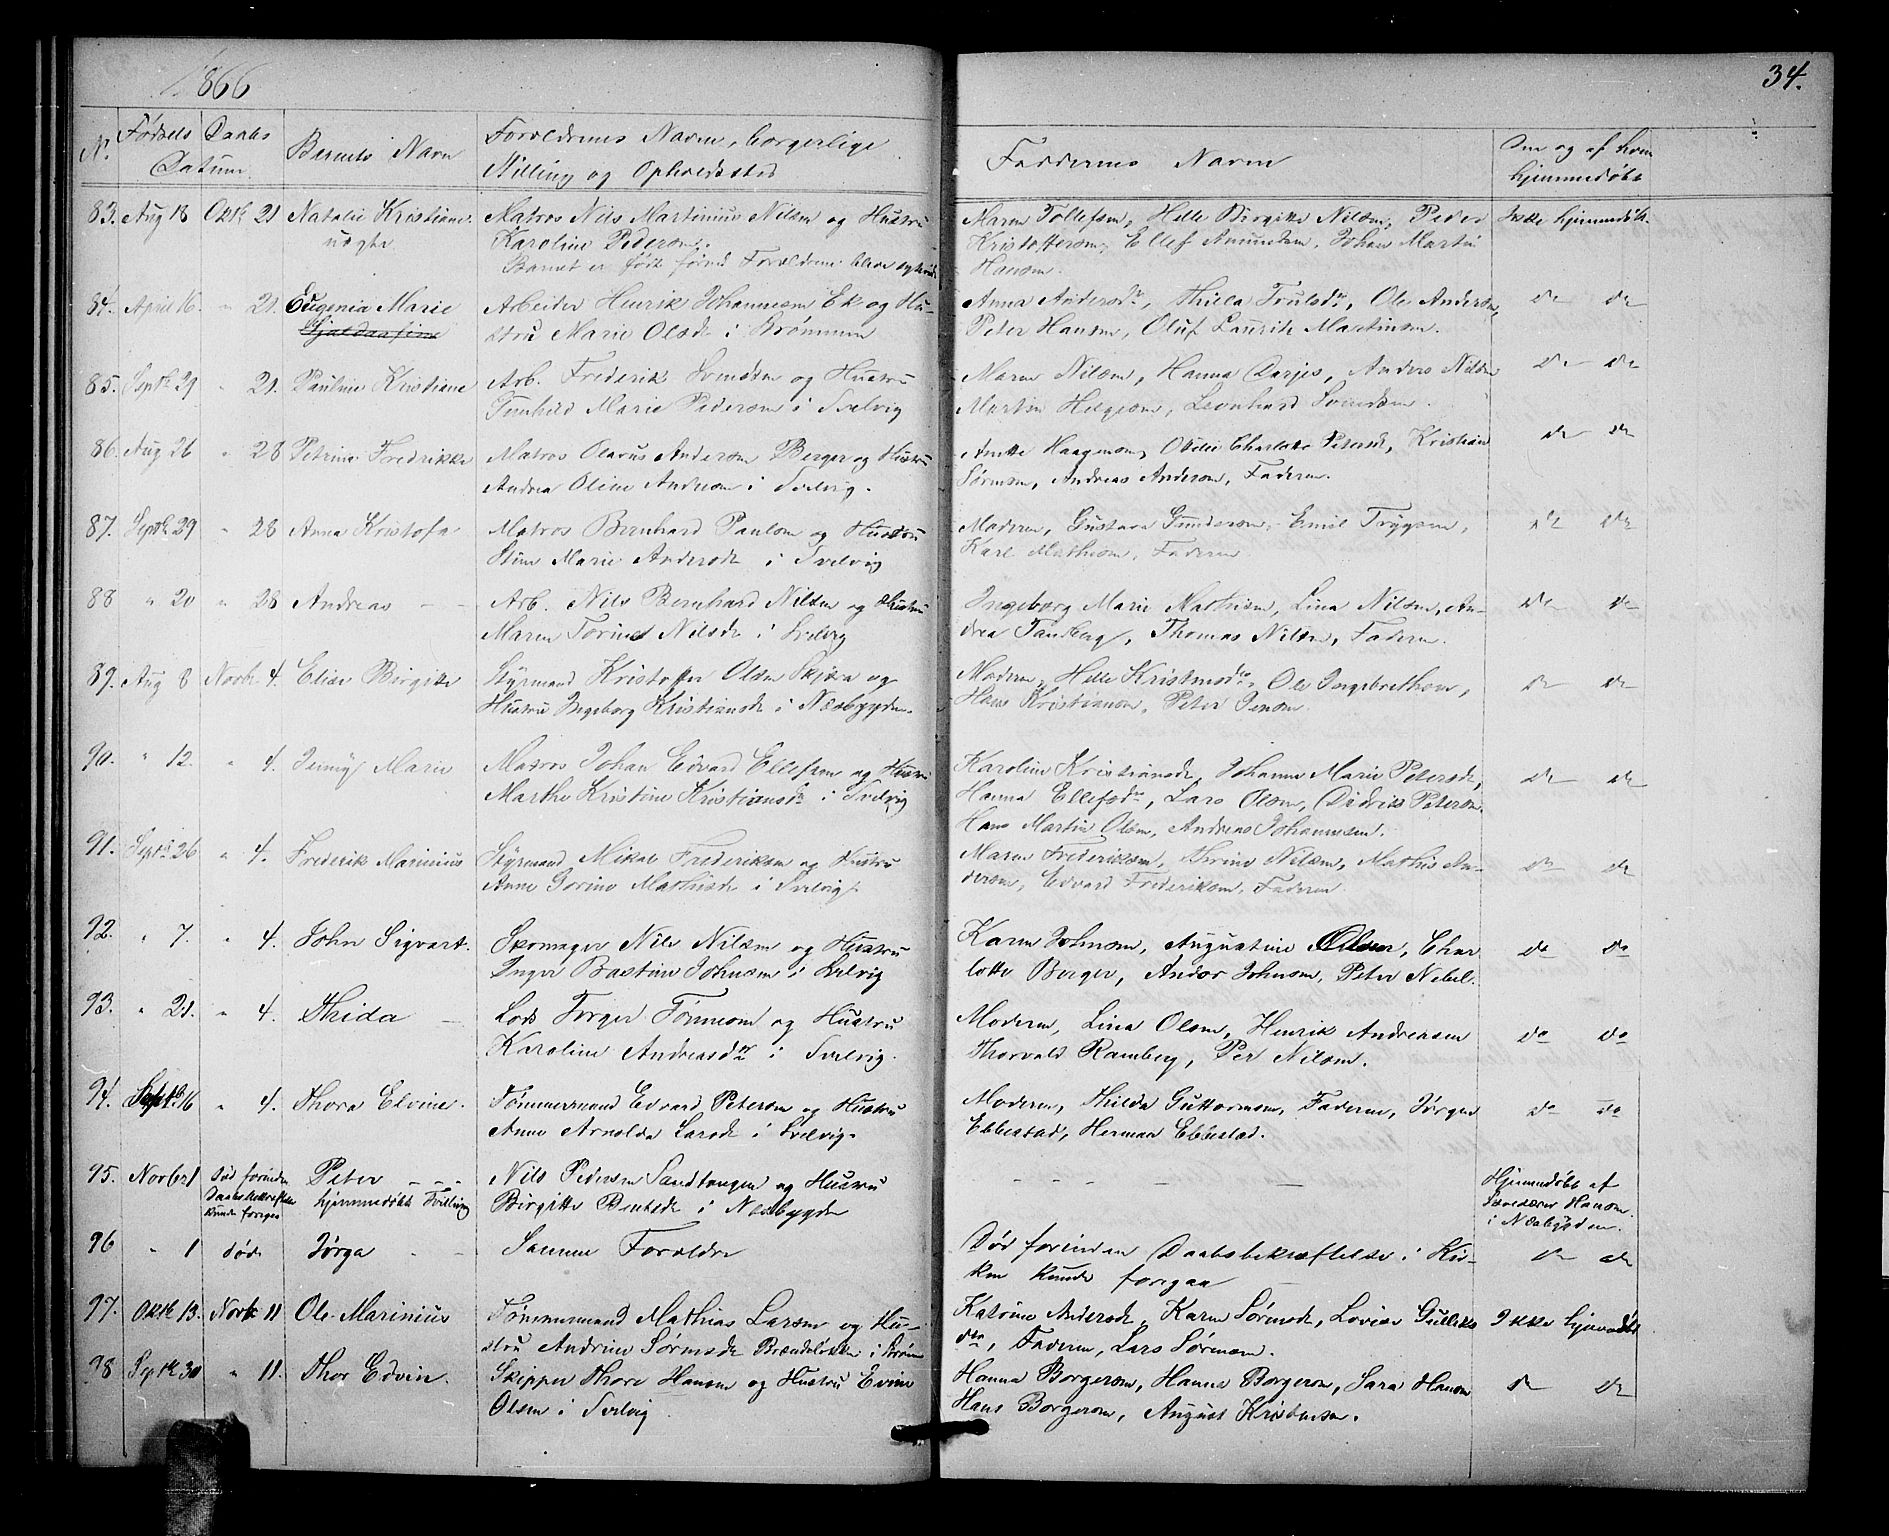 1866
34.
N. Fødsels Daabs Datum Barnets Navn Forældrenes Navne, borgerlige Stilling og Opholdssted Faddernes Navne Om og af hvem hjemmedøbt
83. Aug 18 Oktb 21 Natalie Kristiane Matros Nils Martinius Nilsen og Hustru Maren Tollefsen, Helle Birgitte Nilsen, Peder Ikke hjemmedøbt.
uægte Karoline Pedersen. Kristoffersen, Ellef Amundsen, Johan Martin
Barnet er født førend Forældrene bleve Hansen.
84. April 16. " 21. Eugenia Marie Arbeider Henrik Johannesen Ek og Hu- Anna Andersdr, Thilla Trulsdr, Ole Andersen, do do
stru Marie Olsdr i Strømmen Peter Hansen, Oluf Lauritz Martinsen.
85. Septb 29 " 21. Pauline Kristiane Arb. Frederik Svendsen og Hustru Maren Nilsen, Hanna Darjes, Anders Nilsen do do
Gunhild Marie Pedersen i Svelvig Martin Helgesen, Leonhard Svendsen.
86. Aug 26 " 28 Petrine Fredrikke Matros Olavus Andersen Berger og Hustru Anette Haagensen, Otilie Charlotte Petersdr, Kristian do do
Andrea Oline Andresen i Svelvig. Sørensen, Andreas Andersen, Faderen.
87. Septb 29 " 28 Anna Kristofa Matros Bernhard Paulsen og Hustru Moderen, Gustava Gundersen, Emil Trygsen, do do
Stine Marie Andersdr i Svelvig Karl Mathisen, Faderen.
88 " 20 " 28 Andreas - - Arb. Nils Bernhard Nilsen og Hustru Ingeborg Marie Mathisen, Lina Nilsen, An- do do
Maren Torine Nilsdr i Svelvig drea Tandberg, Thomas Nilsen, Faderen.
89. Aug 8 Novbr 4. Elise Birgitte Styrmand Kristoffer Olsen Skjæra og Moderen, Helle Kristensdr, Ole Ingebrethsen, do do
Hustru Ingeborg Kristiansdr i Næsbygden. Hans Kristiansen, Peter Jensen.
90. " 12. " 4. Jenny Marie Matros Johan Edvard Ellefsen og Hustru Karoline Kristiansdr, Johanne Marie Petersdr, do do
Marthe Kristine Kristiansdr i Svelvig Hanna Ellefsdr, Lars Olsen, Didrik Petersen.
Hans Martin Olsen, Andreas Johannesen.
91. Septb 26 " 4. Frederik Marinius Styrmand Mikal Frederiksen og Hustru Maren Frederiksen, Thrine Nilsen, Mathis An- do do
Anne Gorine Mathisdr i Svelvig. dersen, Edvard Frederiksen, Faderen
92. " 7. " 4. John Sigvart. Skomager Nils Nilsen og Hustru Karen Johnsen, Augustine Olsen, Char do do
Inger Bastine Johnsen i Svelvig lotte Berger, Andor Johnsen, Peter Nebel.
93. " 21. " 4. Thida - Lods Torger Tønnesen og Hustru Moderen, Lina Olsen, Henrik Andreasen do do
Karoline Andreasdr i Svelvig. Thorvald Ramberg, Per Nilsen.
94. Septb 16 " 4. Thora Elvine. Tømmermand Edvard Petersen og Hustru Moderen, Thilda Guttormsen, Faderen, Jørgen do do
Anne Arnolda Larsdr i Svelvig. Ebbestad, Herman Ebbestad.
95. Novbr 1 Død forinden Peter - - - Nils Pedersen Sandtangen og Hustru - - - - - Hjemmedøbt af
Daabsbekræftelse hjemmedøbt Tvilling Birgitte Bentsdr i Næsbygden Hansen
kunde foregaa i Næsbygden.
96 " 1 død Jørga - - Samme Forældre Død forinden Daabsbekræftelse i Kir- do do
ken kunde foregaa
97. Oktb 13. Novbr 11 Ole Marinius Tømmermand Mathias Larsen og Hu- Katrine Andersdr, Karen Sørensdr, Lovise Gulliks Ikke hjemmedøbt
stru Andrine Sørensdr Brændeløkken i Strømm dtr, Faderen, Lars Sørensen.
98 Septb 30 " 11. Thor Edvin. Skipper Thore Hansen og Hustru Evine Hanna Borgersen, Hanna Borgersen, Sara Hansen do do
Olsen i Svelvig. Hans Borgersen, August Kristensen.